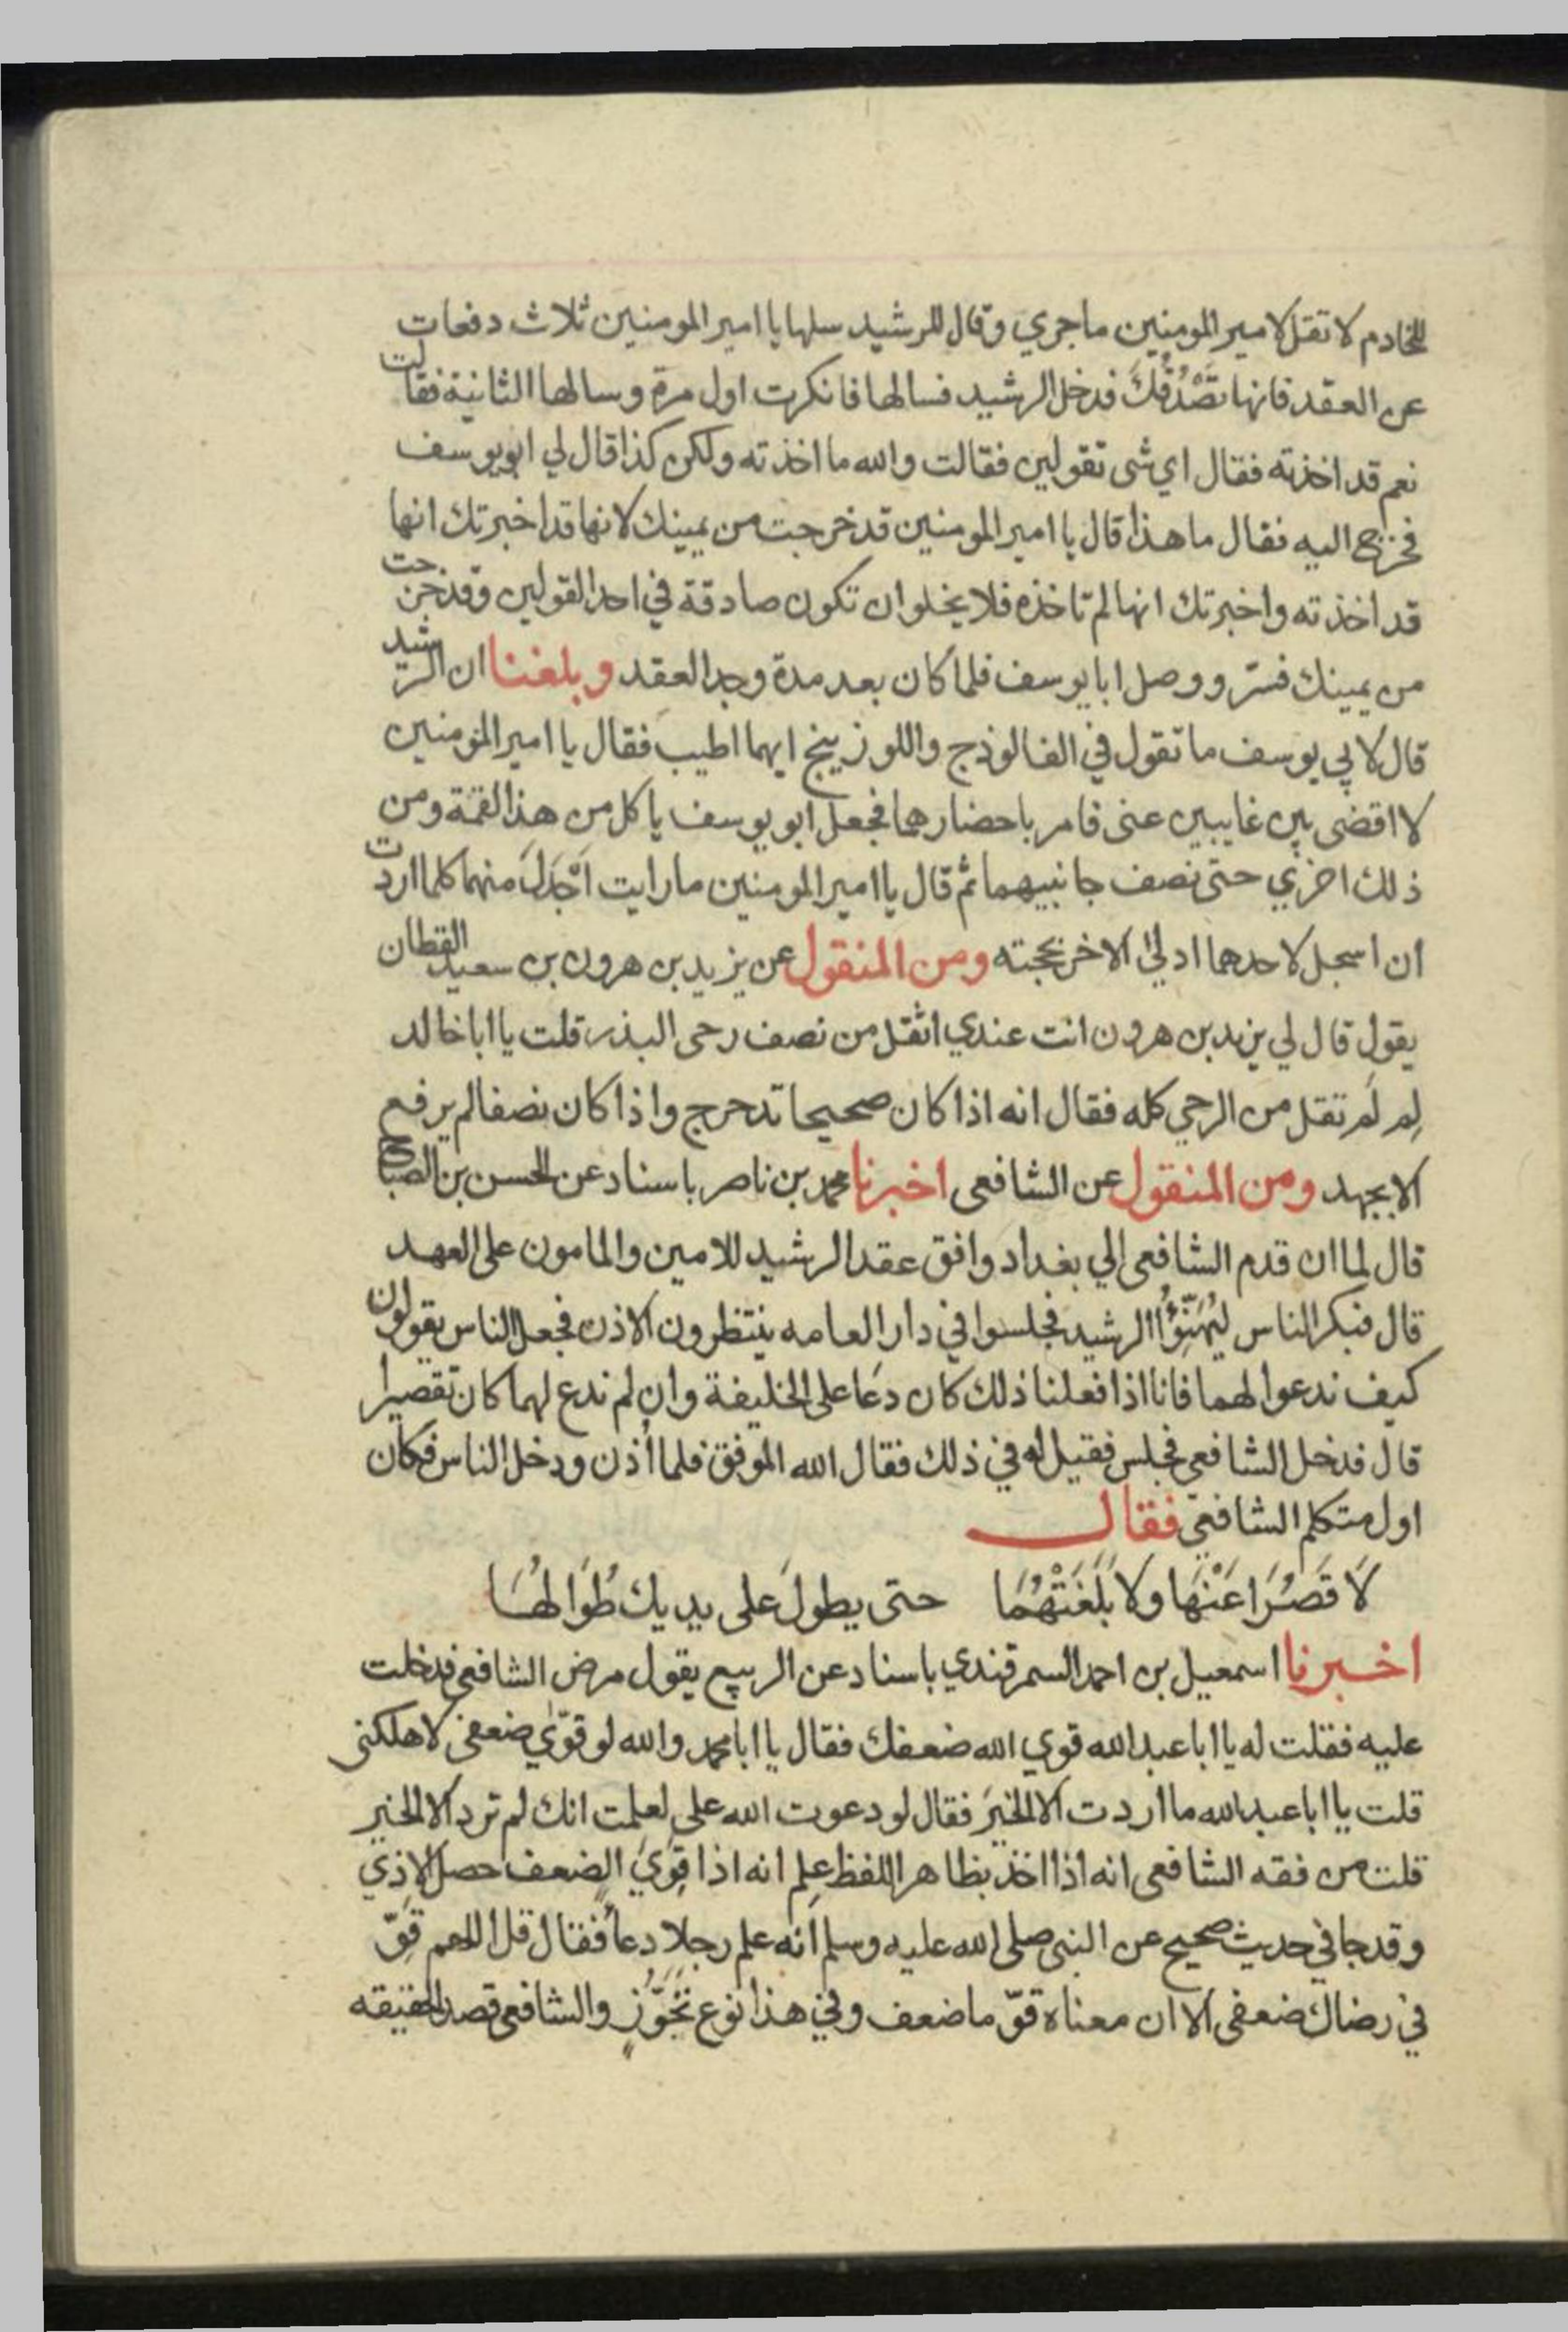 للخادم لا تقل لامير المومنين ما جري وقال للرشيد سلها يا امير المومنين ثلاث دفعات
عن العقد فانها تَصْدُقُكَ فدخل الرشيد فسالها فانكرت اول مرة وسالها الثانية فقالت
نعم قد اخذته فقال اي شى تقولين فقالت والله ما اخذته ولكن كذا قال لي ابو يوسف
فخرج اليه فقال ما هذا قال يا امير المومنين قد خرجت من يمينك لانها قد اخبرتك انها
قد اخذته واخبرتك انها لم تاخذه فلا يخلو ان تكون صادقة في احد القولين وقد خرجت
من يمينك فسر ووصل ابا يوسف فلما كان بعد مدة وجد العقد وبلغنا ان الرشيد
قال لابي يوسف ما تقول في الفالوذج واللوزينج ايهما اطيب فقال يا امير المومنين
لا اقضى بين غايبين عنى فامر باحضارهما فجعل ابو يوسف ياكل من هذا لقمة ومن
ذلك اخري حتى نصف جانبيهما ثم قال يا امير المومنين ما رايت اَجْدَلَ منهما كلما اردت
ان اسجل لاحدهما ادلي الاخر بحجته ومن المنقول عن يزيد بن هرون بن سعيد القطان
يقول قال لي يزيد بن هرون انت عندي اثقل من نصف رحى البذر قلت يا ابا خالد
لِم لَم تقل من الرحي كله فقال انه اذا كان صحيحا تدحرج واذا كان نصفا لم يرفع
الا بجهد ومن المنقول عن الشافعى اخبرنا محمد بن ناصر باسناد عن الحسن بن الصباح
قال لما ان قدم الشافعى الي بغداد وافق عقد الرشيد للامين والمامون على العهد
قال فبكر الناس ليُهَنِّؤُا الرشيد فجلسوا في دار العامه ينتظرون الاذن فجعل الناس يقولون
كيف ندعوا لهما فانا اذا فعلنا ذلك كان دعا على الخليفة وان لم ندع لهما كان تقصيرا
قال فدخل الشافعى فجلس فقيل له في ذلك فقال الله الموفق فلما أذن ودخل الناس فكان
اول متكلم الشافعى فقال
لَا قَصُرَا عَنْهَا ولا بَلَغَتْهُمَا حتى يطولَ على يديك طُوَالهُا
اخبرنا اسمعيل بن احمد السمرقندي باسناد عن الربيع يقول مرض الشافعى فدخلت
عليه فقلت له يا ابا عبد الله قوي الله ضعفك فقال يا ابا محمد والله لو قوّي ضعفى لاهلكنى
قلت يا ابا عبد الله ما اردت الا الخير فقال لو دعوت الله على لعلمت انك لم ترد الا الخير
قلت من فقه الشافعى انه اذا اخذ بظاهر اللفظ علم انه اذا قوي الضعف حصل الاذي
وقد جا في حديث صحيح عن النبى صلى الله عليه وسلم انه علم رجلا دعا فقال قل اللهم قَوّ
في رضاك ضعفى الا ان معناه قوّ ما ضعف وفي هذا نوع تَجَوُّز والشافعى قصد الحقيقه